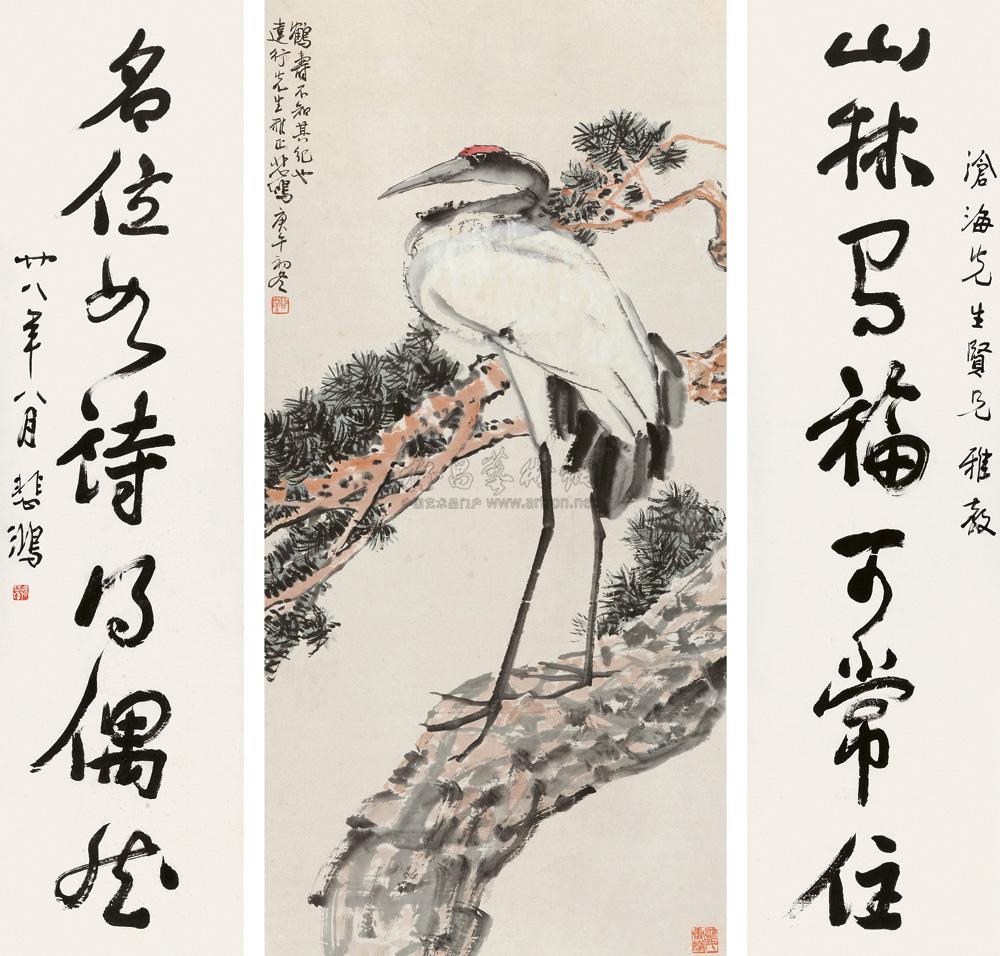 滄海先生賢兄雅教
山林有福可常住
鶴壽不知其紀也
遠行先生雅正悲鴻庚午初冬
名位如詩得偶然
廿八年八月悲鴻
www.artron.net